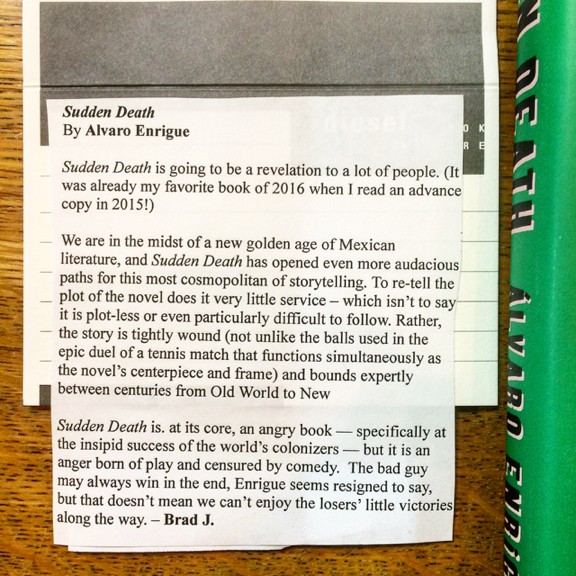 Sudden Death
By Alvaro Enrigue
Sudden Death is going to be a revelation to a lot of people. (It
was already my favorite book of 2016 when I read an advance
copy in 2015!)
We are in the midst of a new golden age of Mexican
literature, and Sudden Death has opened even more audacious
paths for this most cosmopolitan of storytelling. To re-tell the
plot of the novel does it very little service – which isn't to say
it is plot-less or even particularly difficult to follow. Rather,
the story is tightly wound (not unlike the balls used in the
epic duel of a tennis match that functions simultaneously as
the novel's centerpiece and frame) and bounds expertly
between centuries from Old World to New
Sudden Death is. at its core, an angry book — specifically at
the insipid success of the world's colonizers — but it is an
anger born of play and censured by comedy.  The bad guy
may always win in the end, Enrigue seems resigned to say,
but that doesn't mean we can't enjoy the losers' little victories
along the way. – Brad J.
diesel
O K
R E
N DEATH ÁLVARO ENRIG